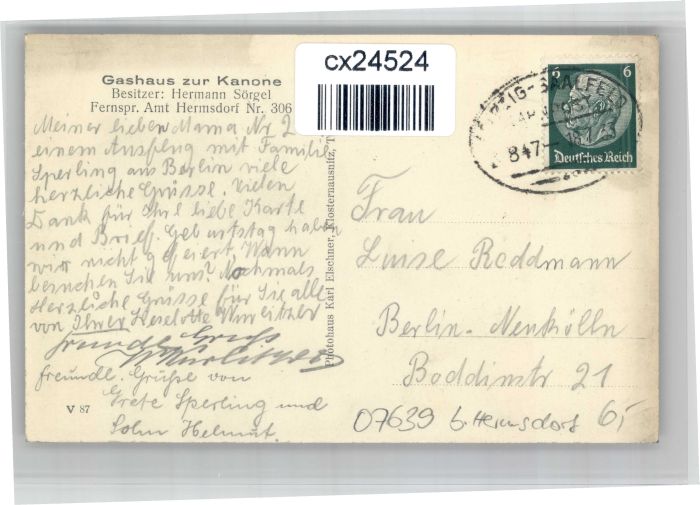 cx24524
Gashaus zur Kanone
Besitzer: Hermann Sörgel
Fernspr. Amt Hermsdorf Nr. 306
Meiner lieben Mama Nr 2
einem Ausflug mit Familie
Sperling aus Berlin viele
herzliche Grüsse. Vielen
Dank für Ihre liebe Karte
und Brief. Geburtstag haben
wir nicht gefeiert. Wann
besuchen Sie uns? Nochmals
Herzliche Grüsse für Sie alle
von Ihrer Lieselotte
freundl. Gruß
freundl. Grüße von
Grete Sperling und
Sohn Helmut.
V 87
Photohaus Karl Elschner, Klosterlausnitz, T
LEIPZIG-SAALFELD
847
6 6
Deutsches Reich
Frau
Luise Roddmann
Berlin-Neukölln
Boddinstr 21
07639 b. Hermsdorf 6,-